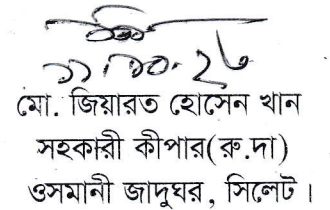 মো. জিয়ারত হোসেন খান
সহকারী কীপার(রু.দা)
ওসমানী জাদুঘর, সিলেট।